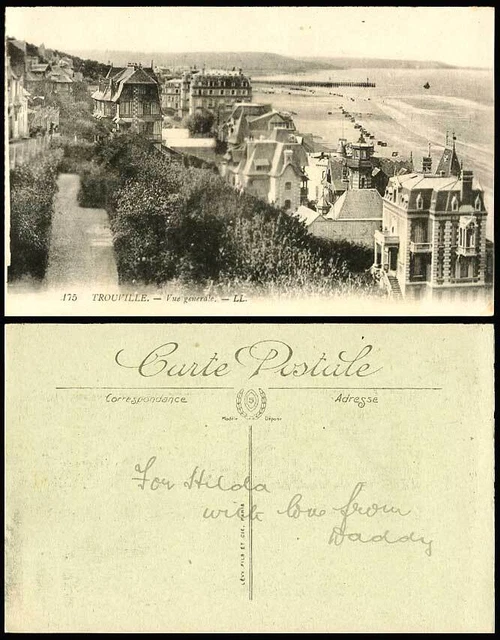 175 TROUVILLE. — Vue générale. — LL.
Carte Postale
Correspondance
Adresse
Modèle Déposé
For Hilda
with love from
Daddy
LÉVY FILS ET CIE, PARIS